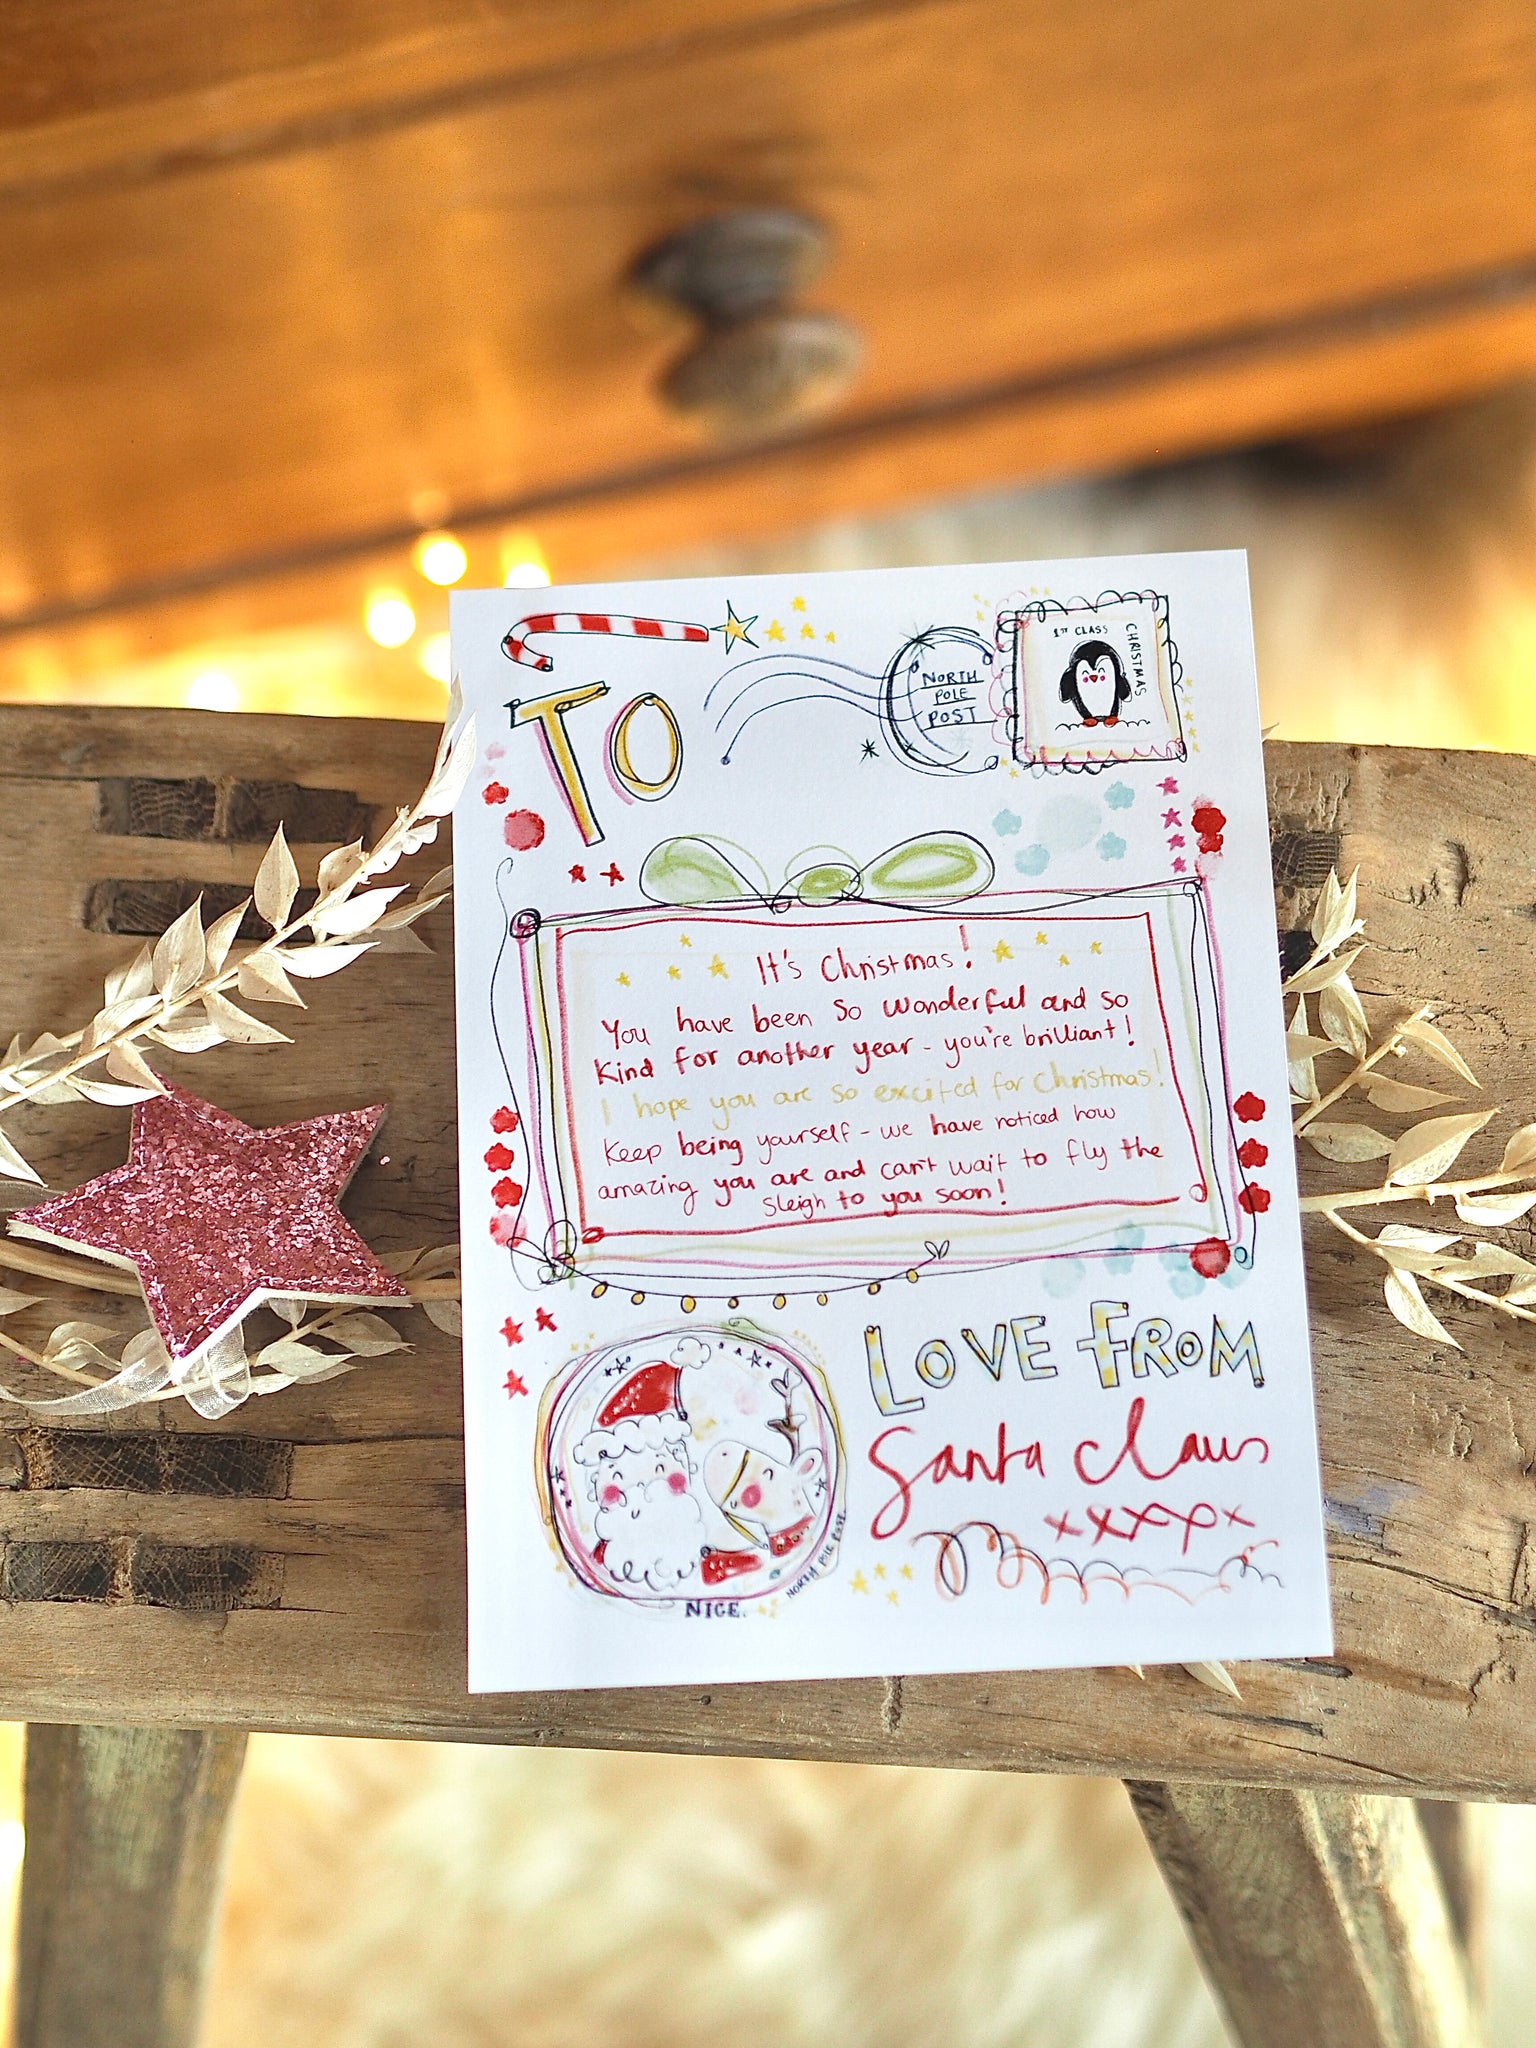 1ST CLASS
CHRISTMAS
NORTH
POLE
POST
TO
It's Christmas!
You have been so wonderful and so
kind for another year - you're brilliant!
I hope you are so excited for Christmas!
Keep being yourself - we have noticed how
amazing you are and can't wait to fly the
sleigh to you soon!
LOVE FROM
Santa Claus
xxxxx
NORTH POLE POST.
NICE.